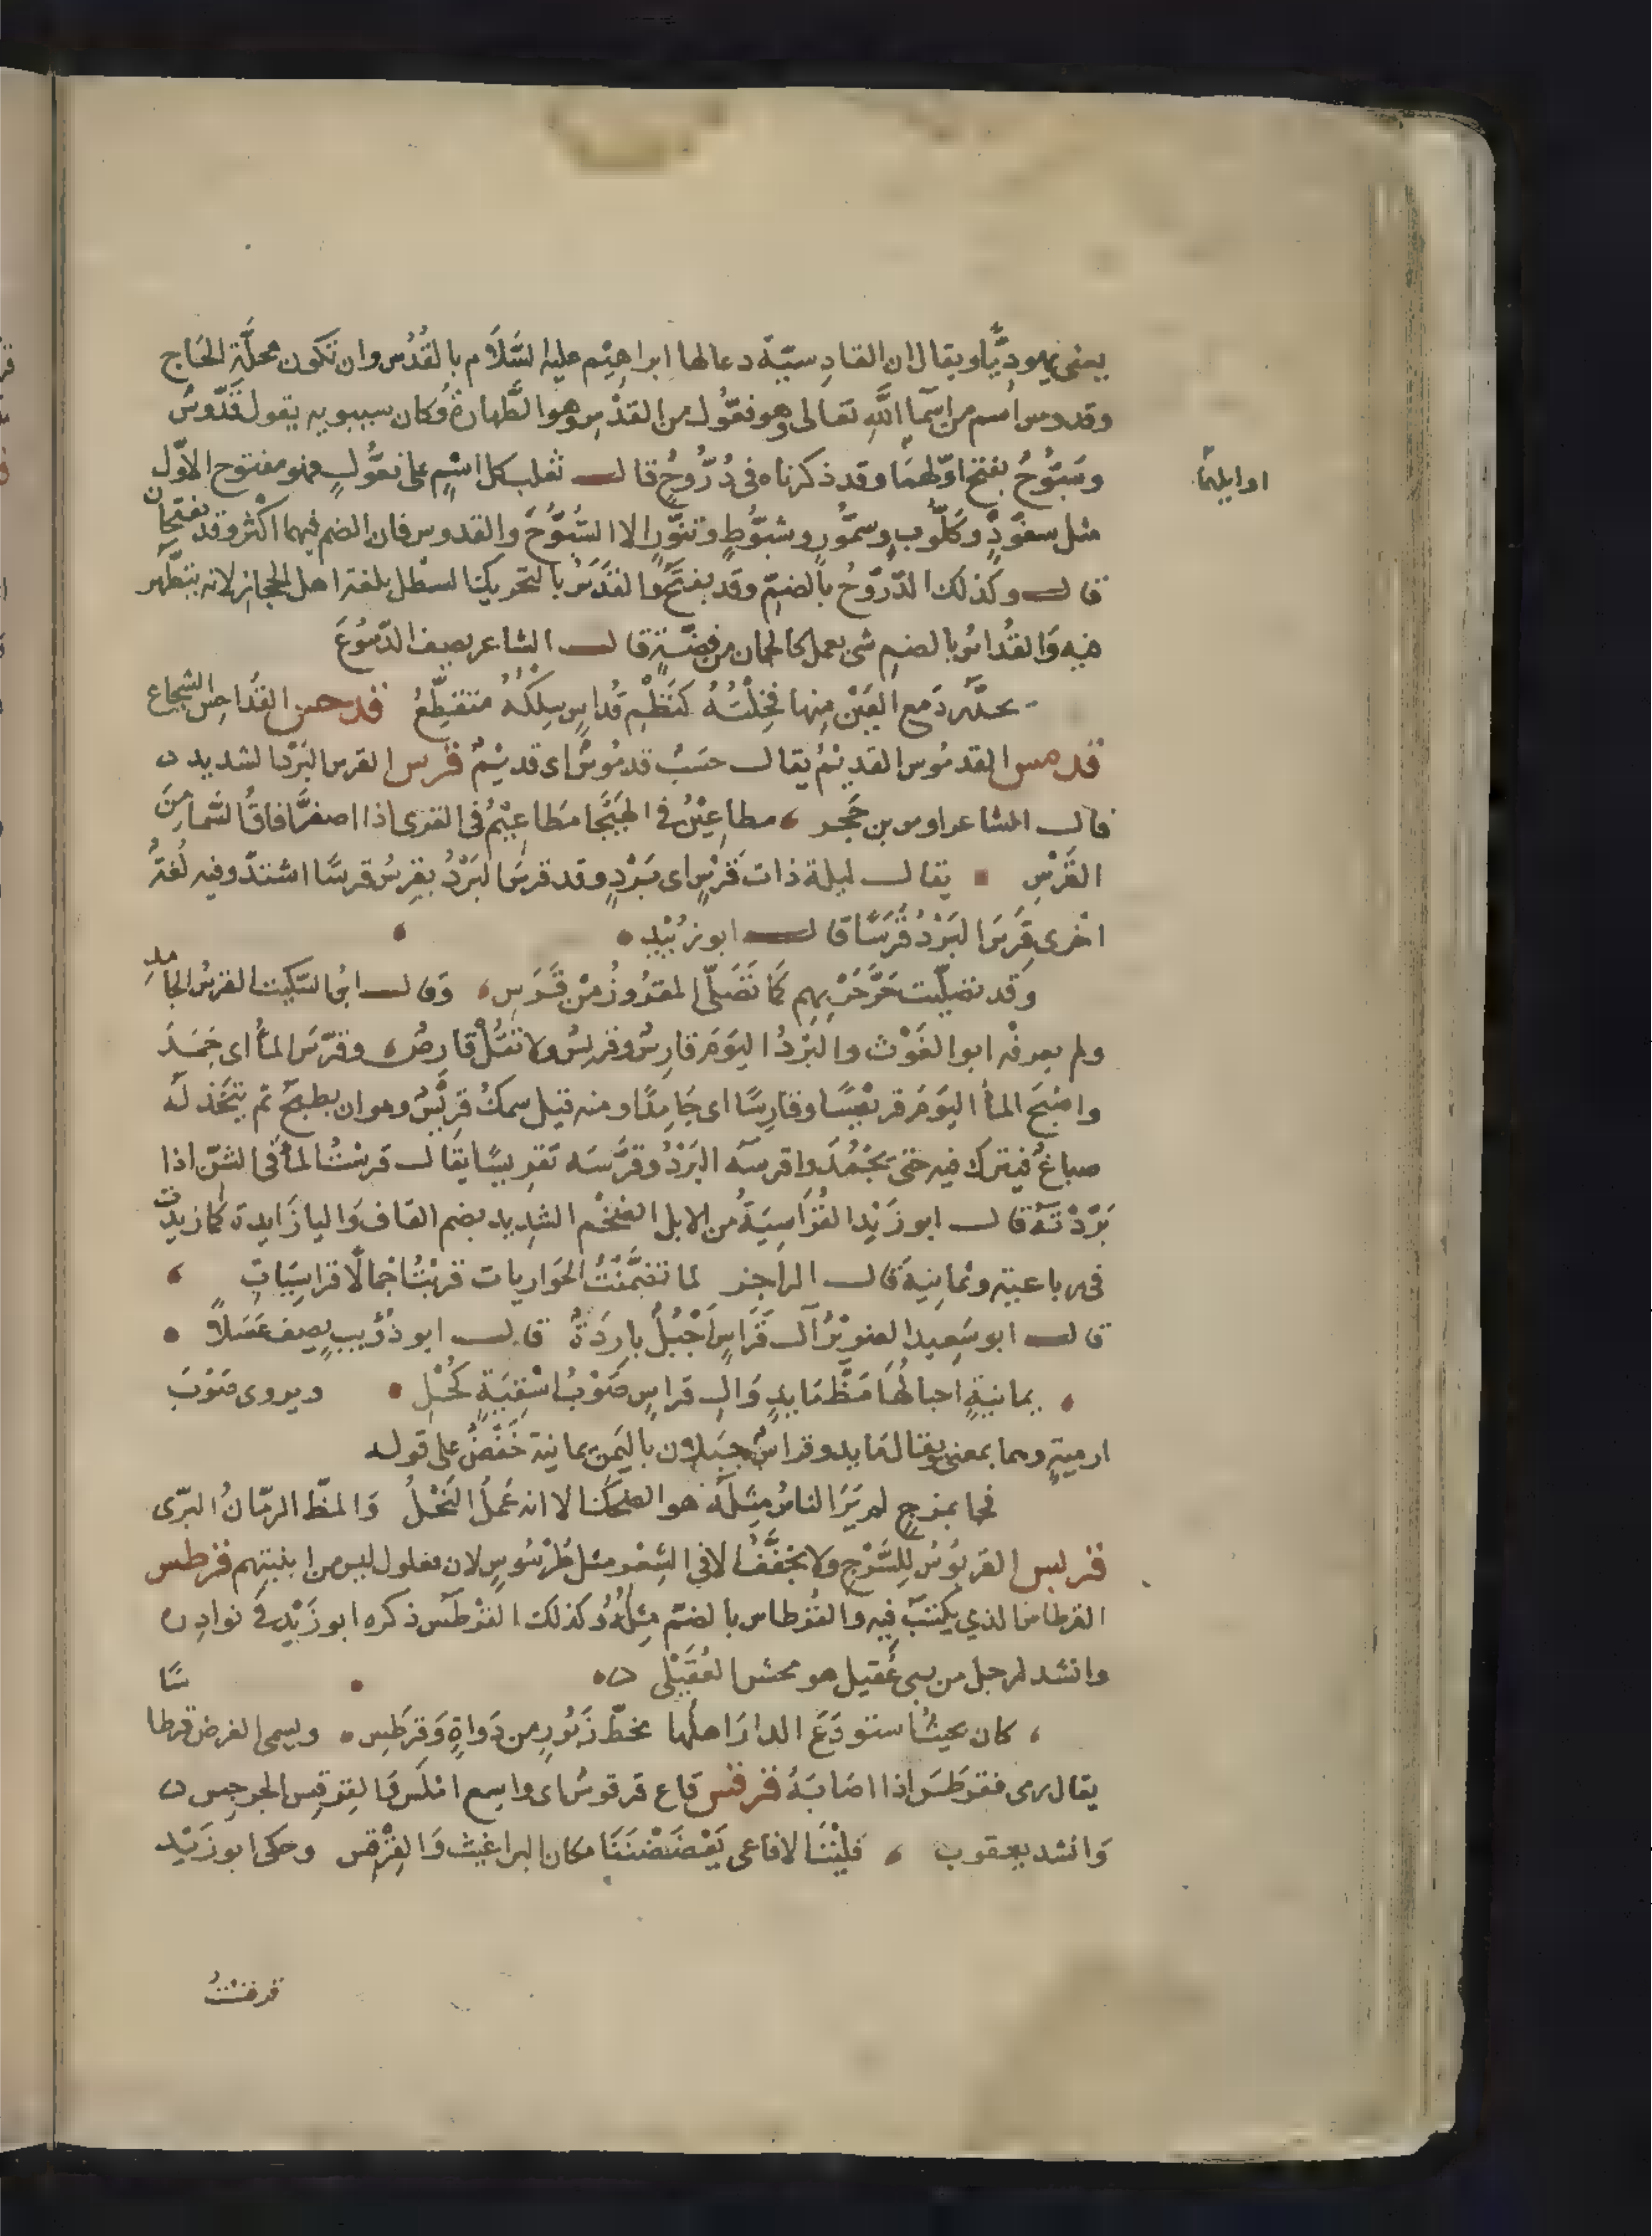 يعنى يهوديًّا ويقال ان القادِسيّة دعا لها ابراهيْم عليه السَّلاَم بالقُدُس وان تكون محلَّة الحَاج
وقدوس اسم من اسمآ اللَّهِ تعالى وهو فعُّول من القدْسِ وهو الطَّهارة وكان سيبويه يقول قَدّوسٌ
وسَبُّوحٌ بفتح اوّلهمَا وقد ذكرناه فى ذُرُّوحٍ قال ثعلب كل اسْمٍ على فعُّولٍ فهو مفتوح الاوّل
اوايلهمَا
مثل سفّوْدٍ وكلُّوبٍ وسمُّورٍ وشبُّوطٍ وتنّورٍ الا السُّبُّوْحَ والقدوس فان الضم فيهما اكْثر وقد يفتحان
قال وكذلك الذّرّوْحُ بالضمِّ وقد يفتحَ والقَدَسُ بالتحريك السطْل بلغة اهل الحجاز لانه يتطَهر
فيه وَالقُدَاسُ بالضمِ شئ يعمل كالجمان من فضّةٍ قال الشاعر يصف الدّمُوعَ
تحدَّر دَمع العَيْن مِنها فخِلْتُهُ كنَظْمِ قُداسٍ سِلكُهُ متقطِّعُ قدحس القُدَاحِسُ الشجاع
قدمس القدمُوس القديْمُ يقال حسَبٌ قدمُوسٌ اى قديْمٌ قرس القرس البَرْد الشديد
قال الشاعر اوس بن حَجر مطاعِيْنُ فى الهَيْجَا مَطَاعيْمُ فى القرى اذا اصفرَّ آفاقُ السَّما مِنَ
القَرْسِ يقال ليلة ذات قَرْسٍ اى بَرْدٍ وقد قرسَ البَرْدُ يقرِسُ قرسًا اشتدّ وفيه لُغَةٌ
اخرى قَرِسَ البَرْدُ قَرَسًا قال ابو زبُيْدٍ
وَقد تصَلّيت حَرَّ حَرْبِهِم كمَا تَصَلّى المقرُورُ مِنْ قَرَسِ وَقال ابنُ السّكِيت القرسُ الجامدِ
ولم يعرفْه ابو الغَوْث والبَرْدُ اليَوْمَ قارِسٌ وقريسٌ ولا تقُلْ قارِصٌ وقرّسَ المآُ اى جَمَدَ
واصْبَح المآُ اليَوْمَ قريْسًا وقارِسًا اى جَامِدًا ومنه قيل سمكٌ قرِيْسٌ وهو ان يطبخَ ثم يتّخذ لَه
صباغٌ فيترك فيه حتى يجْمُدَ واقرسَه البَرْدُ وقرَّسَه تقريسًا يقَال قرسْتُ المآَ فى الشنّ اذا
بَرَّدْتَهُ قال ابو زَيْد القُرَاسِيَةُ من الابل الضخْم الشديد بضم القاف وَاليا زَايدة كما زيدت
فى رباعية وثمانِيَةَ قال الراجز لما تضمَّنْتُ الحَواريات قربْتُ اجْمالًا قراسِيَاتٍ
قال ابو سَعِيد الضريْرُ آل قَرَاسٍ اَجْبُلٌ بارِدَةٌ قال ابو ذؤيبٍ يصف عَسَلًا
يمانيةٍ احيا لهَا مَظَّ مَابِدٍ وَالِ قراسٍ صَوْبُ اسْقِيَةٍ كُحْلِ ويروى صَوْبَ
ارميةٍ وهما بمعنى ويقال مَابد وقراسٌ جبَلان باليَمن يمانية خَفْضٌ على قوله
فجا بمزجٍ لم يَرَ الناسُ مِثلَه هو الضحكُ الا انه عَملُ النَّحْلُ وَالمظّ الرمّانُ البرّى
قربس القربُوْسُ لِلسَّرْجِ ولا يخفَّفُ الا فى الشِعْر مثل طَرْسُوسٍ لان فعلول ليس من ابنيَتِهم قرطس
القرطاسُ الذي يكتَبُ فِيه والقُرْطاس بالضمّ مِثلُهُ وكذلك القرْطَس ذكره ابو زَيْد فى نوادِره
وانشد لرجل من بنى عُقيل هو محش العُقَيْلى
كان بحيثُ استودَعَ الدارَ اهلُها مخطّ زَبُورٍ من دَوَاةٍ وَقرَطسِ ويسمى الغرض قرطاسًا
يقال رمى فقرطَسَ اذا اصَابَهُ قرقس قاع قرقوسٌ اى واسِع امْلَس وَالقِرْقِس الجِرجِس
وَانشد يعقوب فليْتَ الافاعى يَعْضَضْنَنَا مكان البراغيث وَالقِرْقِسِ وحكى ابو زَيْد
قرقسْتُ